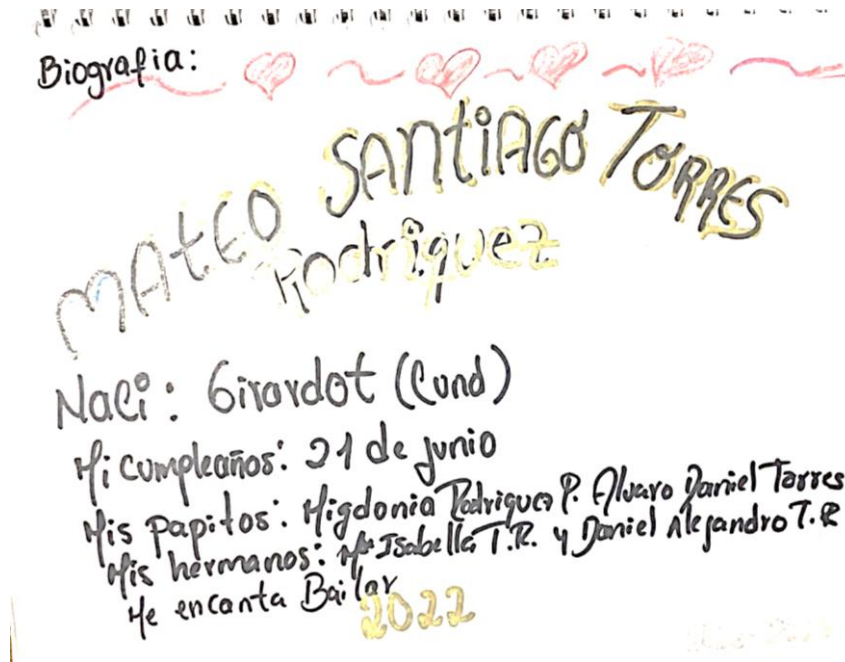 Biografia:
MAtEO SANtiAGO TORRES
Rodriguez
Naci: Girardot (Cund)
Mi cumpleaños: 21 de junio
Mis papitos: Migdonia Rodriguez P. Alvaro Daniel Torres
Mis hermanos: Mª Isabella T.R. y Daniel Alejandro T.R
Me encanta Bailar
2022